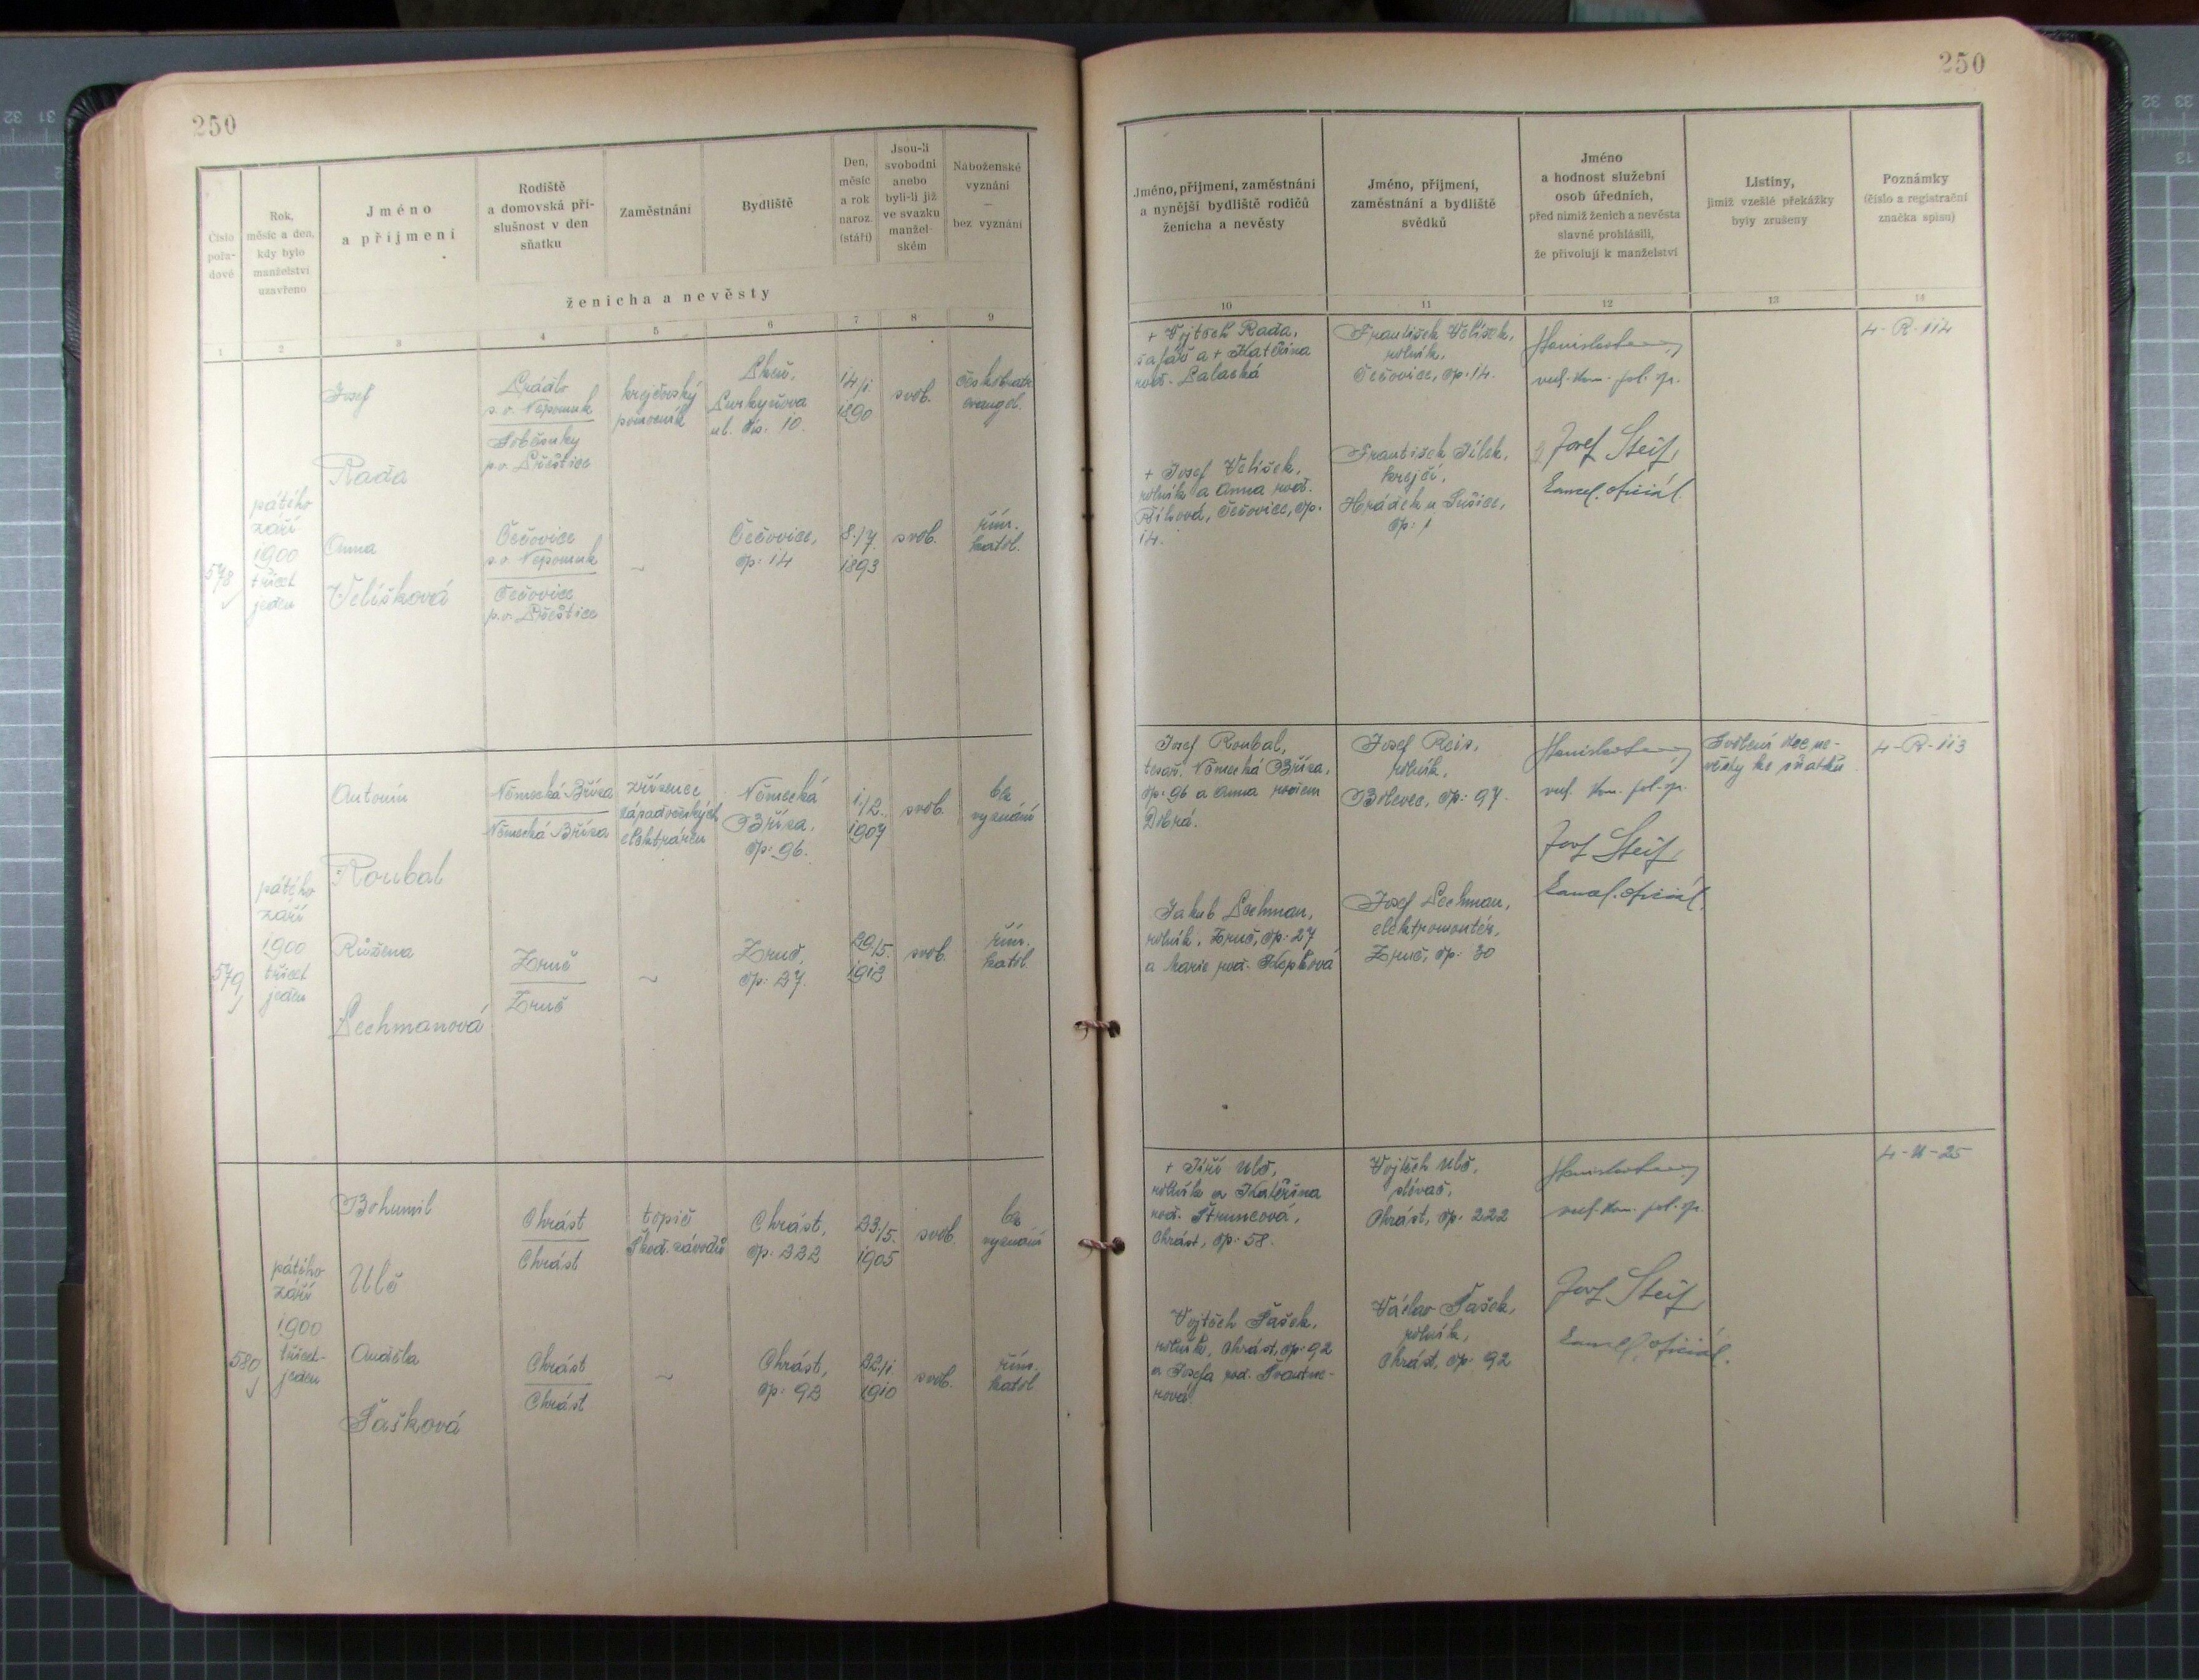 250
250
Číslo
pořa-
dové
Rok,
měsíc a den,
kdy bylo
manželství
uzavřeno
Jméno
a příjmení
Rodiště
a domovská pří-
slušnost v den
sňatku
Zaměstnání
Bydliště
Den,
měsíc
a rok
naroz.
(stáří)
Jsou-li
svobodni
anebo
byli-li již
ve svazku
manžel-
ském
Náboženské
vyznání
—
bez vyznání
ženicha a nevěsty
1
2
3
4
5
6
7
8
9
578
pátého
září
1900
třicet
jeden
Josef
Rada
Prádlo
s.o. Nepomuk
Soběsuky
p.o. Přeštice
krejčovský
pomocník
Plzeň,
Purkyňova
ul. čís. 10.
14/1
1890
svob.
českobratr.
evangel.
Anna
Velíšková
Čečovice
s.o. Nepomuk
Čečovice
p.o. Přeštice
~
Čečovice,
čp. 14
8./7.
1893
svob.
řím.
katol.
579
pátého
září
1900
třicet
jeden
Antonín
Roubal
Německá Bříza
Německá Bříza
zřízenec
západočeských
elektráren
Německá
Bříza,
čp. 96.
1./2.
1907
svob.
bez
vyznání
Růžena
Lechmanová
Zruč
Zruč
~
Zruč,
čp. 27.
29./5.
1912
svob.
řím.
katol.
580
pátého
září
1900
třicet-
jeden
Bohumil
Ulč
Chrást
Chrást
topič
Škod. závodů
Chrást,
čp. 222
23./5.
1905
svob.
bez
vyznání
Anděla
Fašková
Chrást
Chrást
~
Chrást,
čp. 92
22./1
1910
svob.
řím.
katol
Jméno, příjmení, zaměstnání
a nynější bydliště rodičů
ženicha a nevěsty
Jméno, příjmení,
zaměstnání a bydliště
svědků
Jméno
a hodnost služební
osob úředních,
před nimiž ženich a nevěsta
slavně prohlásili,
že přivolují k manželství
Listiny,
jimiž vzešlé překážky
byly zrušeny
Poznámky
(číslo a registrační
značka spisu)
10
11
12
13
14
+ Vojtěch Rada,
šafář a + Kateřina
rod.
František Velíšek,
rolník,
Čečovice, čp. 14.
vrch. kom. pol. spr.
4-R-114
+ Josef Velíšek,
rolník a Anna rod.
Říhová, Čečovice, čp.
14.
František Jílek,
krejčí,
Hrádek u Sušice,
čp. 1
Josef Steif,
kancel. oficiál.
Josef Roubal,
tesař, Německá Bříza,
čp. 96 a Anna rodem
Dobrá.
Josef Reis,
rolník,
Bolevec, čp. 97.
vrch. kom. pol. spr.
Svolení otce ne-
věsty ke sňatku
4-R-113
Jakub Lechman,
rolník, Zruč, čp. 27
a Marie rod.
Josef Lechman,
elektromontér,
Zruč, čp. 30
Josef Steif,
kancel. oficiál.
+ Jiří Ulč,
rolník a Kateřina
rod. Štruncová,
Chrást, čp. 58.
Vojtěch Ulč,
slévač,
Chrást, čp. 222
vrch. kom. pol. spr.
4-U-25
Vojtěch Fašek,
rolník, Chrást, čp. 92
a Josefa rod.
rová
Václav Fašek,
rolník,
Chrást, čp. 92
Josef Steif,
kancel. oficiál.